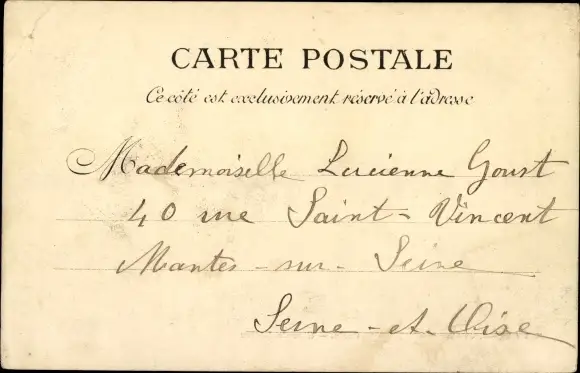 CARTE POSTALE
Ce côté est exclusivement réservé à l'adresse
Mademoiselle Lucienne Goust
40 rue Saint-Vincent
Mantes-sur-Seine
Seine-et-Oise